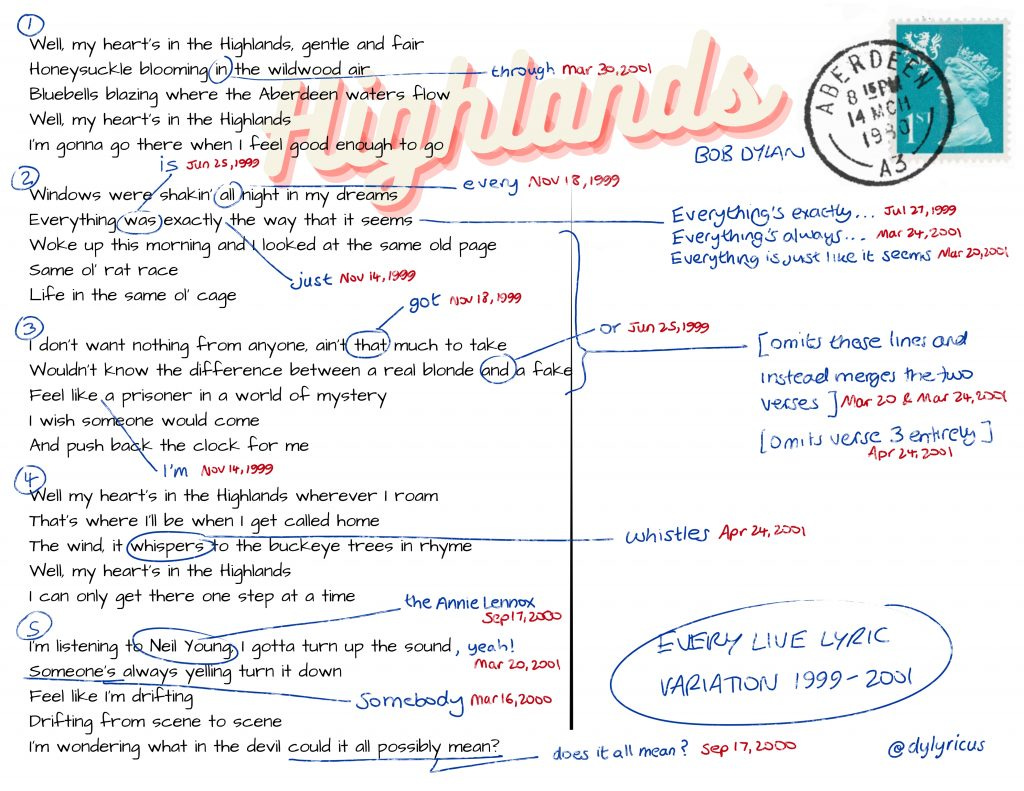 1
Highlands
Well, my heart's in the Highlands, gentle and fair
Honeysuckle blooming in the wildwood air
through Mar 30, 2001
Bluebells blazing where the Aberdeen waters flow
Well, my heart's in the Highlands
I'm gonna go there when I feel good enough to go
BOB DYLAN
ABERDEEN
8 15PM
14 MCH
1980
A3
1ST
is Jun 25, 1999
2
Windows were shakin' all night in my dreams
every Nov 18, 1999
Everything was exactly the way that it seems
Everything's exactly... Jul 27, 1999
Everything's always... Mar 24, 2001
Everything is just like it seems Mar 20, 2001
Woke up this morning and I looked at the same old page
Same ol' rat race
just Nov 14, 1999
Life in the same ol' cage
got Nov 18, 1999
3
or Jun 25, 1999
I don't want nothing from anyone, ain't that much to take
Wouldn't know the difference between a real blonde and a fake
[omits these lines and
instead merges the two
verses] Mar 20 & Mar 24, 2001
[omits verse 3 entirely]
Apr 24, 2001
Feel like a prisoner in a world of mystery
I wish someone would come
And push back the clock for me
I'm Nov 14, 1999
4
Well my heart's in the Highlands wherever I roam
That's where I'll be when I get called home
The wind, it whispers to the buckeye trees in rhyme
whistles Apr 24, 2001
Well, my heart's in the Highlands
I can only get there one step at a time
the Annie Lennox
Sep 17, 2000
5
I'm listening to Neil Young, I gotta turn up the sound, yeah!
Mar 20, 2001
Someone's always yelling turn it down
Somebody Mar 16, 2000
Feel like I'm drifting
Drifting from scene to scene
I'm wondering what in the devil could it all possibly mean?
does it all mean? Sep 17, 2000
EVERY LIVE LYRIC
VARIATION 1999-2001
@dylyricus